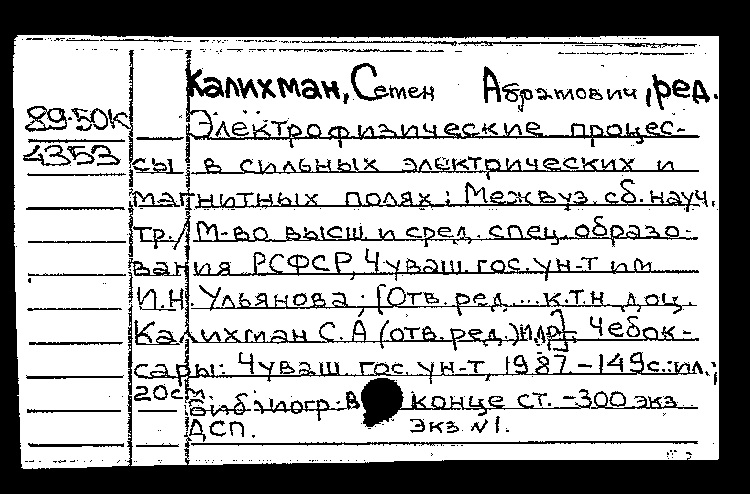 Калихман, Семен Абрамович, ред.
89-50К
Электрофизические процес-
4353
сы в сильных электрических и
магнитных полях: Межвуз. сб. науч.
тр./ М-во высш и сред. спец. образо-
вания РСФСР, Чуваш. гос. ун-т им
И.Н. Ульянова; [Отв. ред... к.т.н. доц.
Калихман С.А (отв. ред.) и др]. Чебок-
сары: Чуваш. гос. ун-т, 1987 - 149с.: ил.;
20см.
библиогр. в конце ст. - 300 экз
ДСП. экз N1.